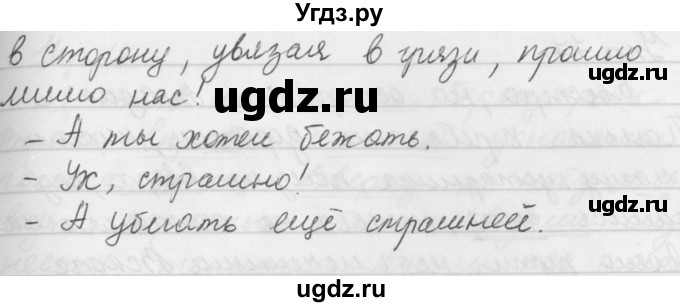 Угдз.ру
в сторону, увязая в грязи, прошло
мимо нас!
ugdz.ru
ugdz.ru
- А ты хотел бежать.
- Ух, страшно!
ugdz.ru
- А убегать ещё страшней.
ugdz.ru